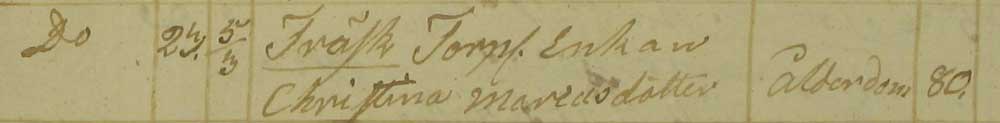 Do 27. 5/3 Träsk Torp. Enkan
Christina Maria dotter Ålderdom 80.